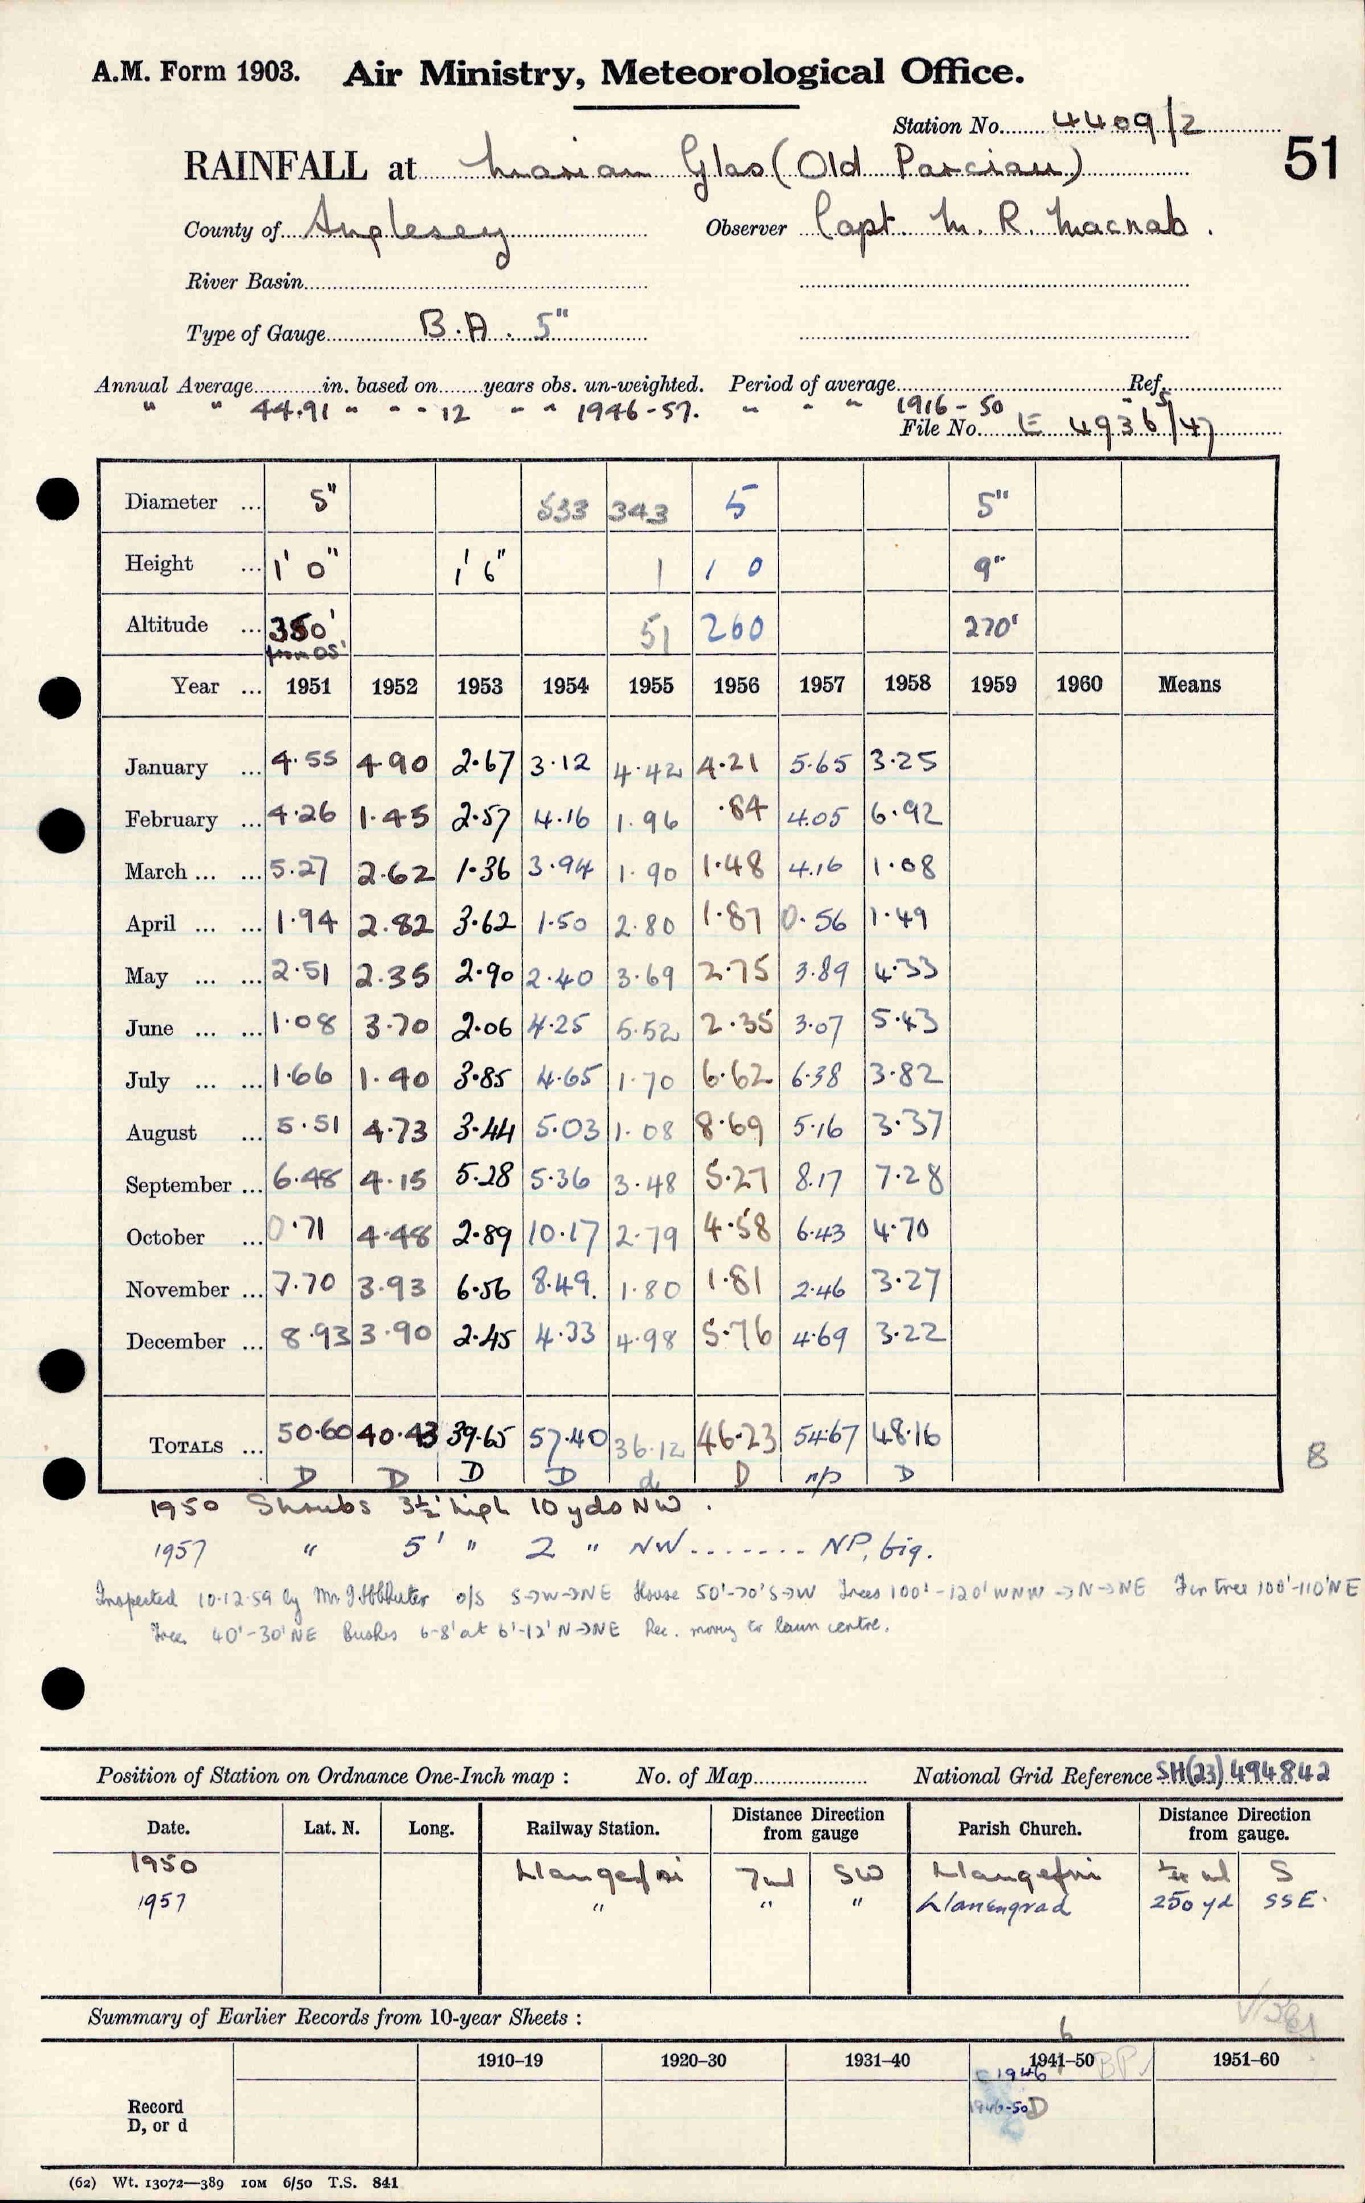 A.M. Form 1903. Air Ministry, Meteorological Office.
Station No. 4409/2
RAINFALL at Marian Glas (Old Parciau) 51
County of Anglesey Observer Capt. M. R. Macnab.
River Basin
Type of Gauge B.A. 5"
Annual Average in. based on years obs. un-weighted. Period of average Ref.
" " 44.91 " " " 12 " " 1946-57. " " " 1916-50
File No. E 4936/47
Diameter ... 5" 533 343 5 5"
Height ... 1' 0" 1' 6" 1 1 0 9"
Altitude ... 350' 51 260 270'
from OS'
Year ... 1951 1952 1953 1954 1955 1956 1957 1958 1959 1960 Means
January ... 4.55 4.90 2.67 3.12 4.42 4.21 5.65 3.25
February ... 4.26 1.45 2.57 4.16 1.96 .84 4.05 6.92
March ... ... 5.27 2.62 1.36 3.94 1.90 1.48 4.16 1.08
April ... ... 1.94 2.82 3.62 1.50 2.80 1.87 0.56 1.49
May ... ... 2.51 2.35 2.90 2.40 3.69 2.75 3.89 4.33
June ... ... 1.08 3.70 2.06 4.25 5.52 2.35 3.07 5.43
July ... ... 1.66 1.40 3.85 4.65 1.70 6.62 6.38 3.82
August ... 5.51 4.73 3.44 5.03 1.08 8.69 5.16 3.37
September ... 6.48 4.15 5.28 5.36 3.48 5.27 8.17 7.28
October ... 0.71 4.48 2.89 10.17 2.79 4.58 6.43 4.70
November ... 7.70 3.93 6.56 8.49. 1.80 1.81 2.46 3.27
December ... 8.93 3.90 2.45 4.33 4.98 5.76 4.69 3.22
TOTALS ... 50.60 40.43 39.65 57.40 36.12 46.23 54.67 48.16 8
D D D D d D n/p D
1950 Shrubs 3½' high 10 yds NW.
1957 " 5' " 2 " NW ....... NP, big.
Inspected 10.12.59 by Mr o/s S→W→NE House 50'-70' S→W Trees 100'-120' WNW→N→NE Fir tree 100'-110' NE
Trees 40'-30' NE Bushes 6-8' at 6'-12' N→NE Rec. moving to lawn centre.
Position of Station on Ordnance One-Inch map : No. of Map National Grid Reference SH(23)494842
Date. Lat. N. Long. Railway Station. Distance Direction from gauge Parish Church. Distance Direction from gauge.
1950 Llangefni 7ml SW Llangefni ¼ ml S
1957 " " " Llaneugrad 250 yd SSE.
Summary of Earlier Records from 10-year Sheets :
6
1910–19 1920–30 1931–40 1941–50 1951–60
BP
1946
Record
D, or d 1946-50 D
(62) Wt. 13072—389 10M 6/50 T.S. 841